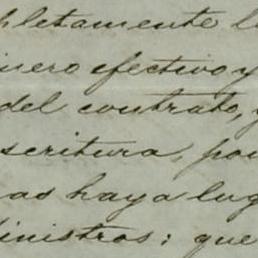 pletamente l
nero efectivo y
del contrato, y
scritura, po
as haya lug
inistros; que